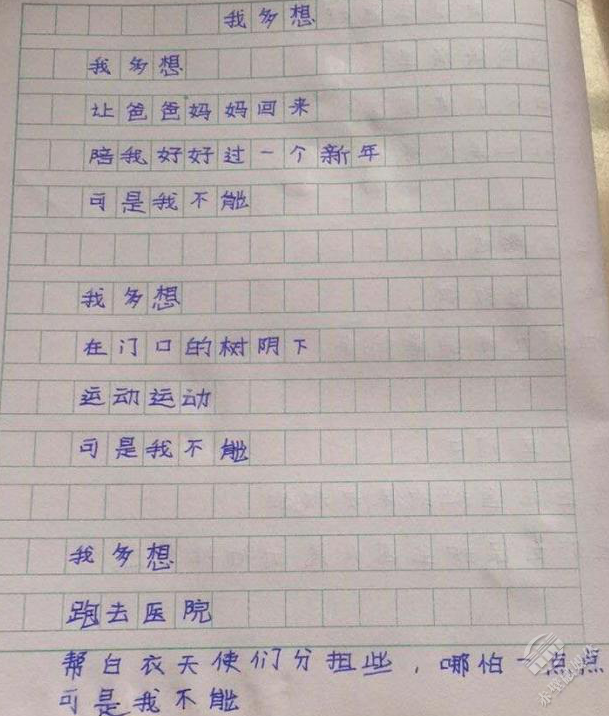 我多想
我多想
让爸爸妈妈回来
陪我好好过一个新年
可是我不能
我多想
在门口的树阴下
运动运动
可是我不能
我多想
跑去医院
帮白衣天使们分担些，哪怕一点点
可是我不能